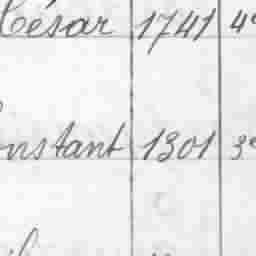 César 1741 4e
onstant 1301 3e